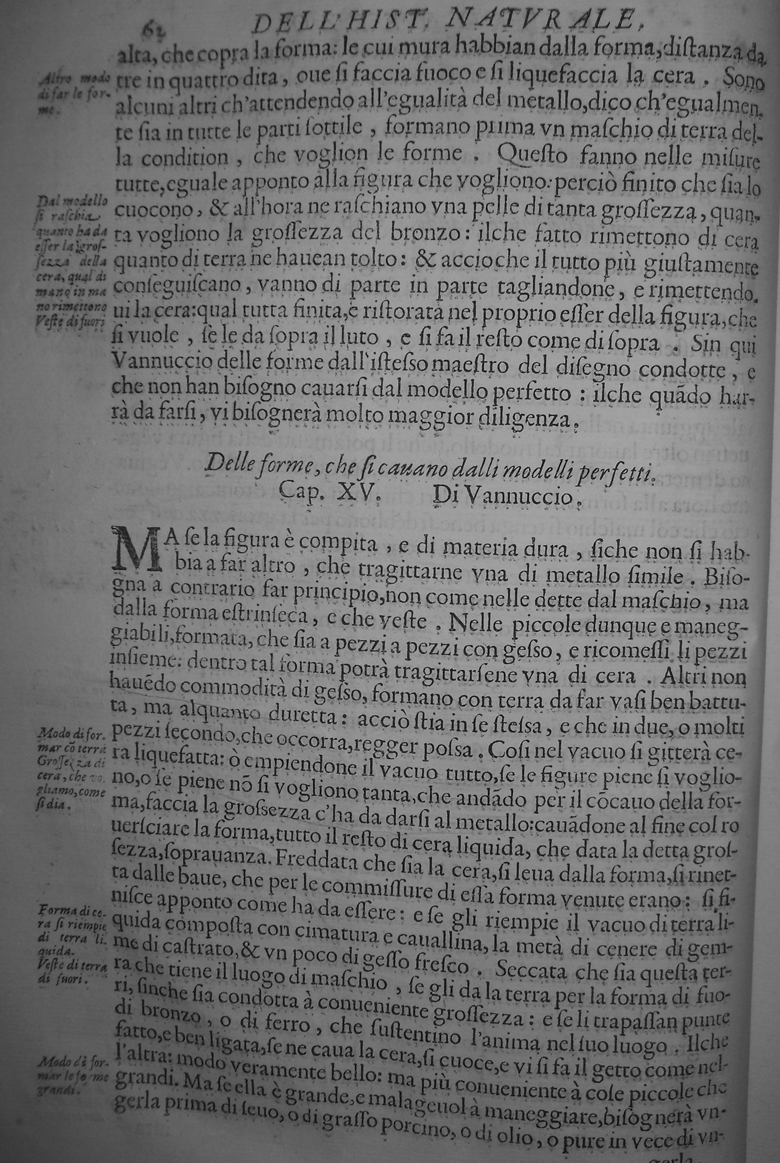 62
DELL'HIST. NATVRALE,
alta, che copra la forma: le cui mura habbian dalla forma, diſtanza da
tre in quattro dita, oue ſi faccia fuoco e ſi liquefaccia la cera. Sono
alcuni altri ch'attendendo all'egualità del metallo, dico ch'egualmen-
te ſia in tutte le parti ſottile, formano prima vn maſchio di terra del-
la condition, che voglion le forme. Queſto fanno nelle miſure
tutte, eguale apponto alla figura che vogliono: perciò finito che ſia lo
cuocono, & all'hora ne raſchiano vna pelle di tanta groſſezza, quan-
ta vogliono la groſſezza del bronzo: ilche fatto rimettono di cera
quanto di terra ne hauean tolto: & accioche il tutto più giuſtamente
conſeguiſcano, vanno di parte in parte tagliandone, e rimettendo-
ui la cera: qual tutta finita, e riſtorata nel proprio eſſer della figura, che
ſi vuole, ſe le da ſopra il luto, e ſi fa il reſto come di ſopra. Sin qui
Vannuccio delle forme dall'iſteſso maeſtro del diſegno condotte, e
che non han biſogno cauarſi dal modello perfetto: ilche quãdo har-
rà da farſi, vi biſognerà molto maggior diligenza.
Altro modo
di far le for-
me.
Dal modello
ſi raſchia
quanto ha da
eſſer la groſ-
ſezza della
cera, qual di
mano in ma
no rimettono
Veſte di fuori
Delle forme, che ſi cauano dalli modelli perfetti.
Cap. XV. Di Vannuccio.
MA ſe la figura è compita, e di materia dura, ſiche non ſi hab-
bia a far altro, che tragittarne vna di metallo ſimile. Biſo-
gna a contrario far principio, non come nelle dette dal maſchio, ma
dalla forma eſtrinſeca, e che veſte. Nelle piccole dunque e maneg-
giabili, formata, che ſia a pezzi a pezzi con geſso, e ricomeſſi li pezzi
inſieme: dentro tal forma potrà tragittarſene vna di cera. Altri non
hauẽdo commodità di geſso, formano con terra da far vaſi ben battu-
ta, ma alquanto duretta: acciò ſtia in ſe ſteſsa, e che in due, o molti
pezzi ſecondo, che occorra, regger poſsa. Coſi nel vacuo ſi gitterà ce-
ra liquefatta: ò empiendone il vacuo tutto, ſe le figure piene ſi voglio-
no, o ſe piene nõ ſi vogliono tanta, che andãdo per il cõcauo della for-
ma, faccia la groſsezza c'ha da darſi al metallo: cauãdone al fine col ro
uerſciare la forma, tutto il reſto di cera liquida, che data la detta groſ-
ſezza, ſoprauanza. Freddata che ſia la cera, ſi leua dalla forma, ſi rinet-
ta dalle baue, che per le commiſſure di eſſa forma venute erano: ſi fi-
niſce apponto come ha da eſſere: e ſe gli riempie il vacuo di terra li-
quida compoſta con cimatura e cauallina, la metà di cenere di gem-
me di caſtrato, & vn poco di geſſo freſco. Seccata che ſia queſta ter-
ra che tiene il luogo di maſchio, ſe gli da la terra per la forma di fuo-
ri, ſinche ſia condotta à conueniente groſſezza: e ſe li trapaſſan punte
di bronzo, o di ferro, che ſuſtentino l'anima nel ſuo luogo. Ilche
fatto, e ben ligata, ſe ne caua la cera, ſi cuoce, e vi ſi fa il getto come nel-
l'altra: modo veramente bello: ma più conueniente à coſe piccole che
grandi. Ma ſe ella è grande, e malageuol à maneggiare, biſognerà vn-
gerla prima di ſeuo, o di graſſo porcino, o di olio, o pure in vece di vn-
gerla
Modo di for-
mar cõ terra
Groſſezza di
cera, che
gliamo, come
ſi dia.
Forma di ce-
ra ſi riempie
di terra li-
quida.
Veſte di terra
di fuori.
Modo di for-
mar le forme
grandi.